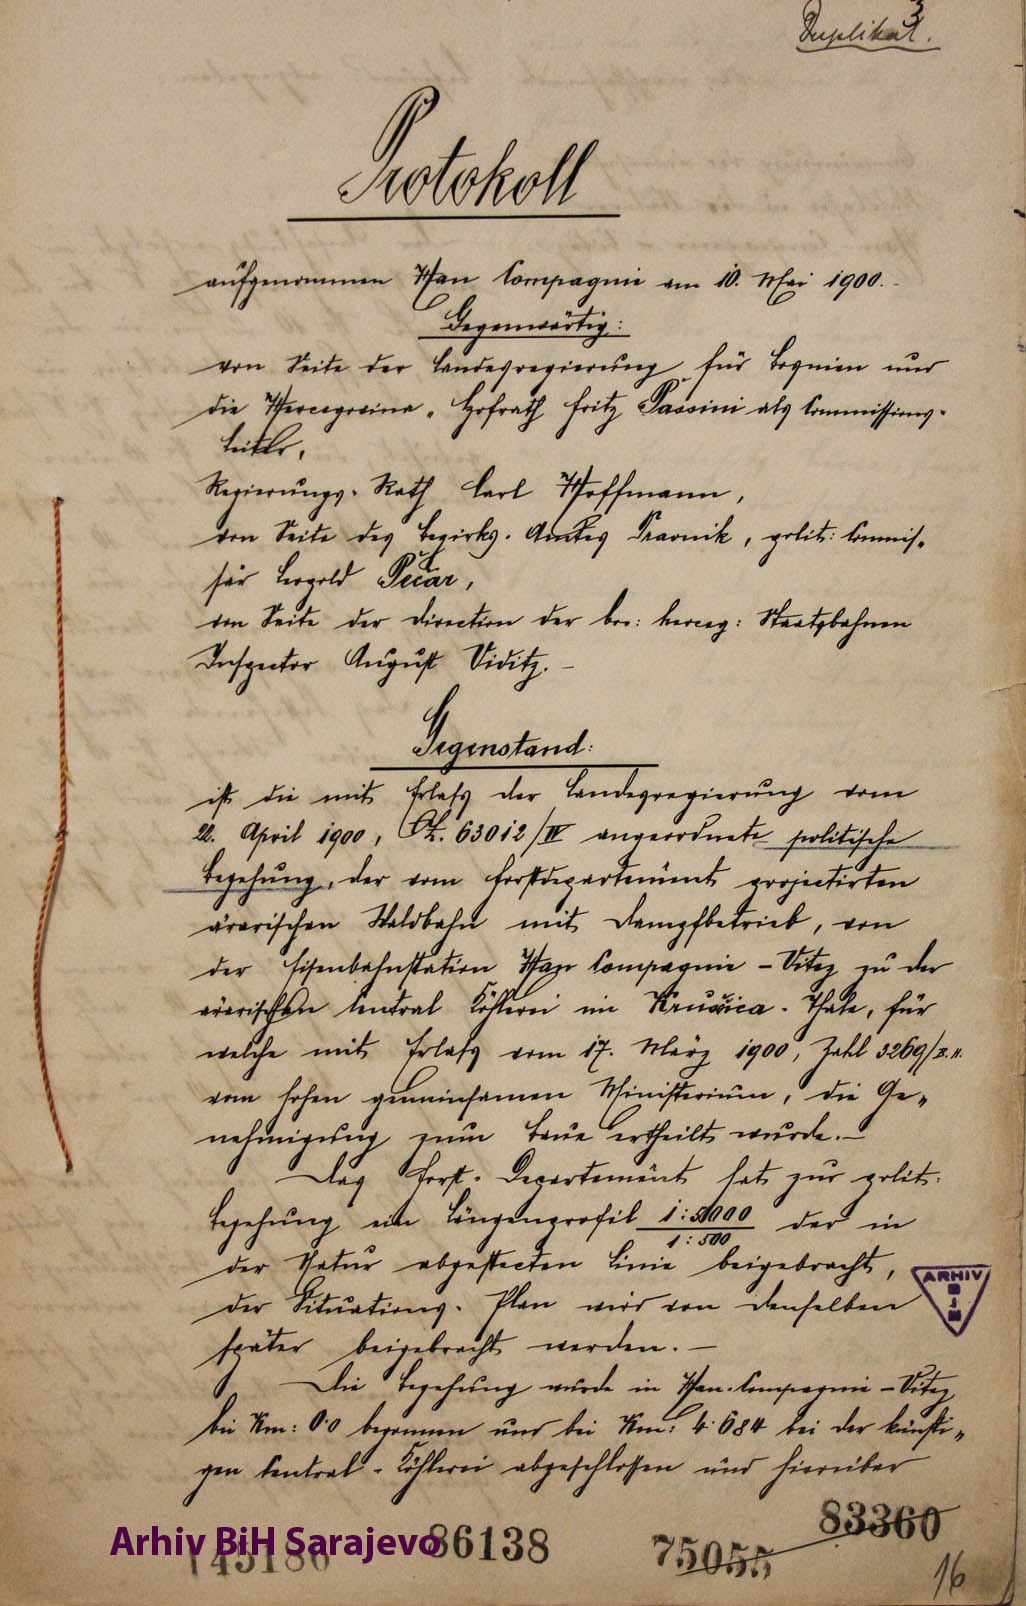 Duplikat.
3
Protokoll
aufgenommen Han Compagnie am 10. Mai 1900.-
Gegenwärtig:
von Seite der Landesregierung für Bosnien und
die Hercegovina, Hofrath Fritz Passini als Commissions-
leiter,
Regierungs-Rath Carl Hoffmann,
von Seite des Bezirks-Amtes Travnik, polit: Commis-
sär Leopold Pečar,
von Seite der Direction der bos: herceg: Staatsbahnen
Inspector August Viditz.-
Gegenstand:
ist die mit Erlass der Landesregierung vom
22. April 1900, Z. 63012/IV angeordnete politische
Begehung, der vom Forstdepartement projectirten
ärarischen Waldbahn mit Dampfbetrieb, von
der Eisenbahnstation Han Compagnie-Vitez zu der
ärarischen Central Köhlerei im Kruščica-Thale, für
welche mit Erlass vom 17. März 1900, Zahl 3269/B.H.
vom hohen gemeinsamen Ministerium, die Ge-
nehmigung zum Baue ertheilt wurde.-
Das Forst-Departement hat zur polit:
Begehung ein Längenprofil 1:5000/1:500 der in
der Natur abgesteckten Linie beigebracht,
der Situations-Plan wird von demselben
später beigebracht werden.-
Die Begehung wurde in Han-Compagnie-Vitez
bei Km: 0·0 begonnen und bei Km: 4·684 bei der künfti-
gen Central-Köhlerei abgeschlossen und hierüber
ARHIV
BIH
83360
Arhiv BiH Sarajevo
86138
75055
16